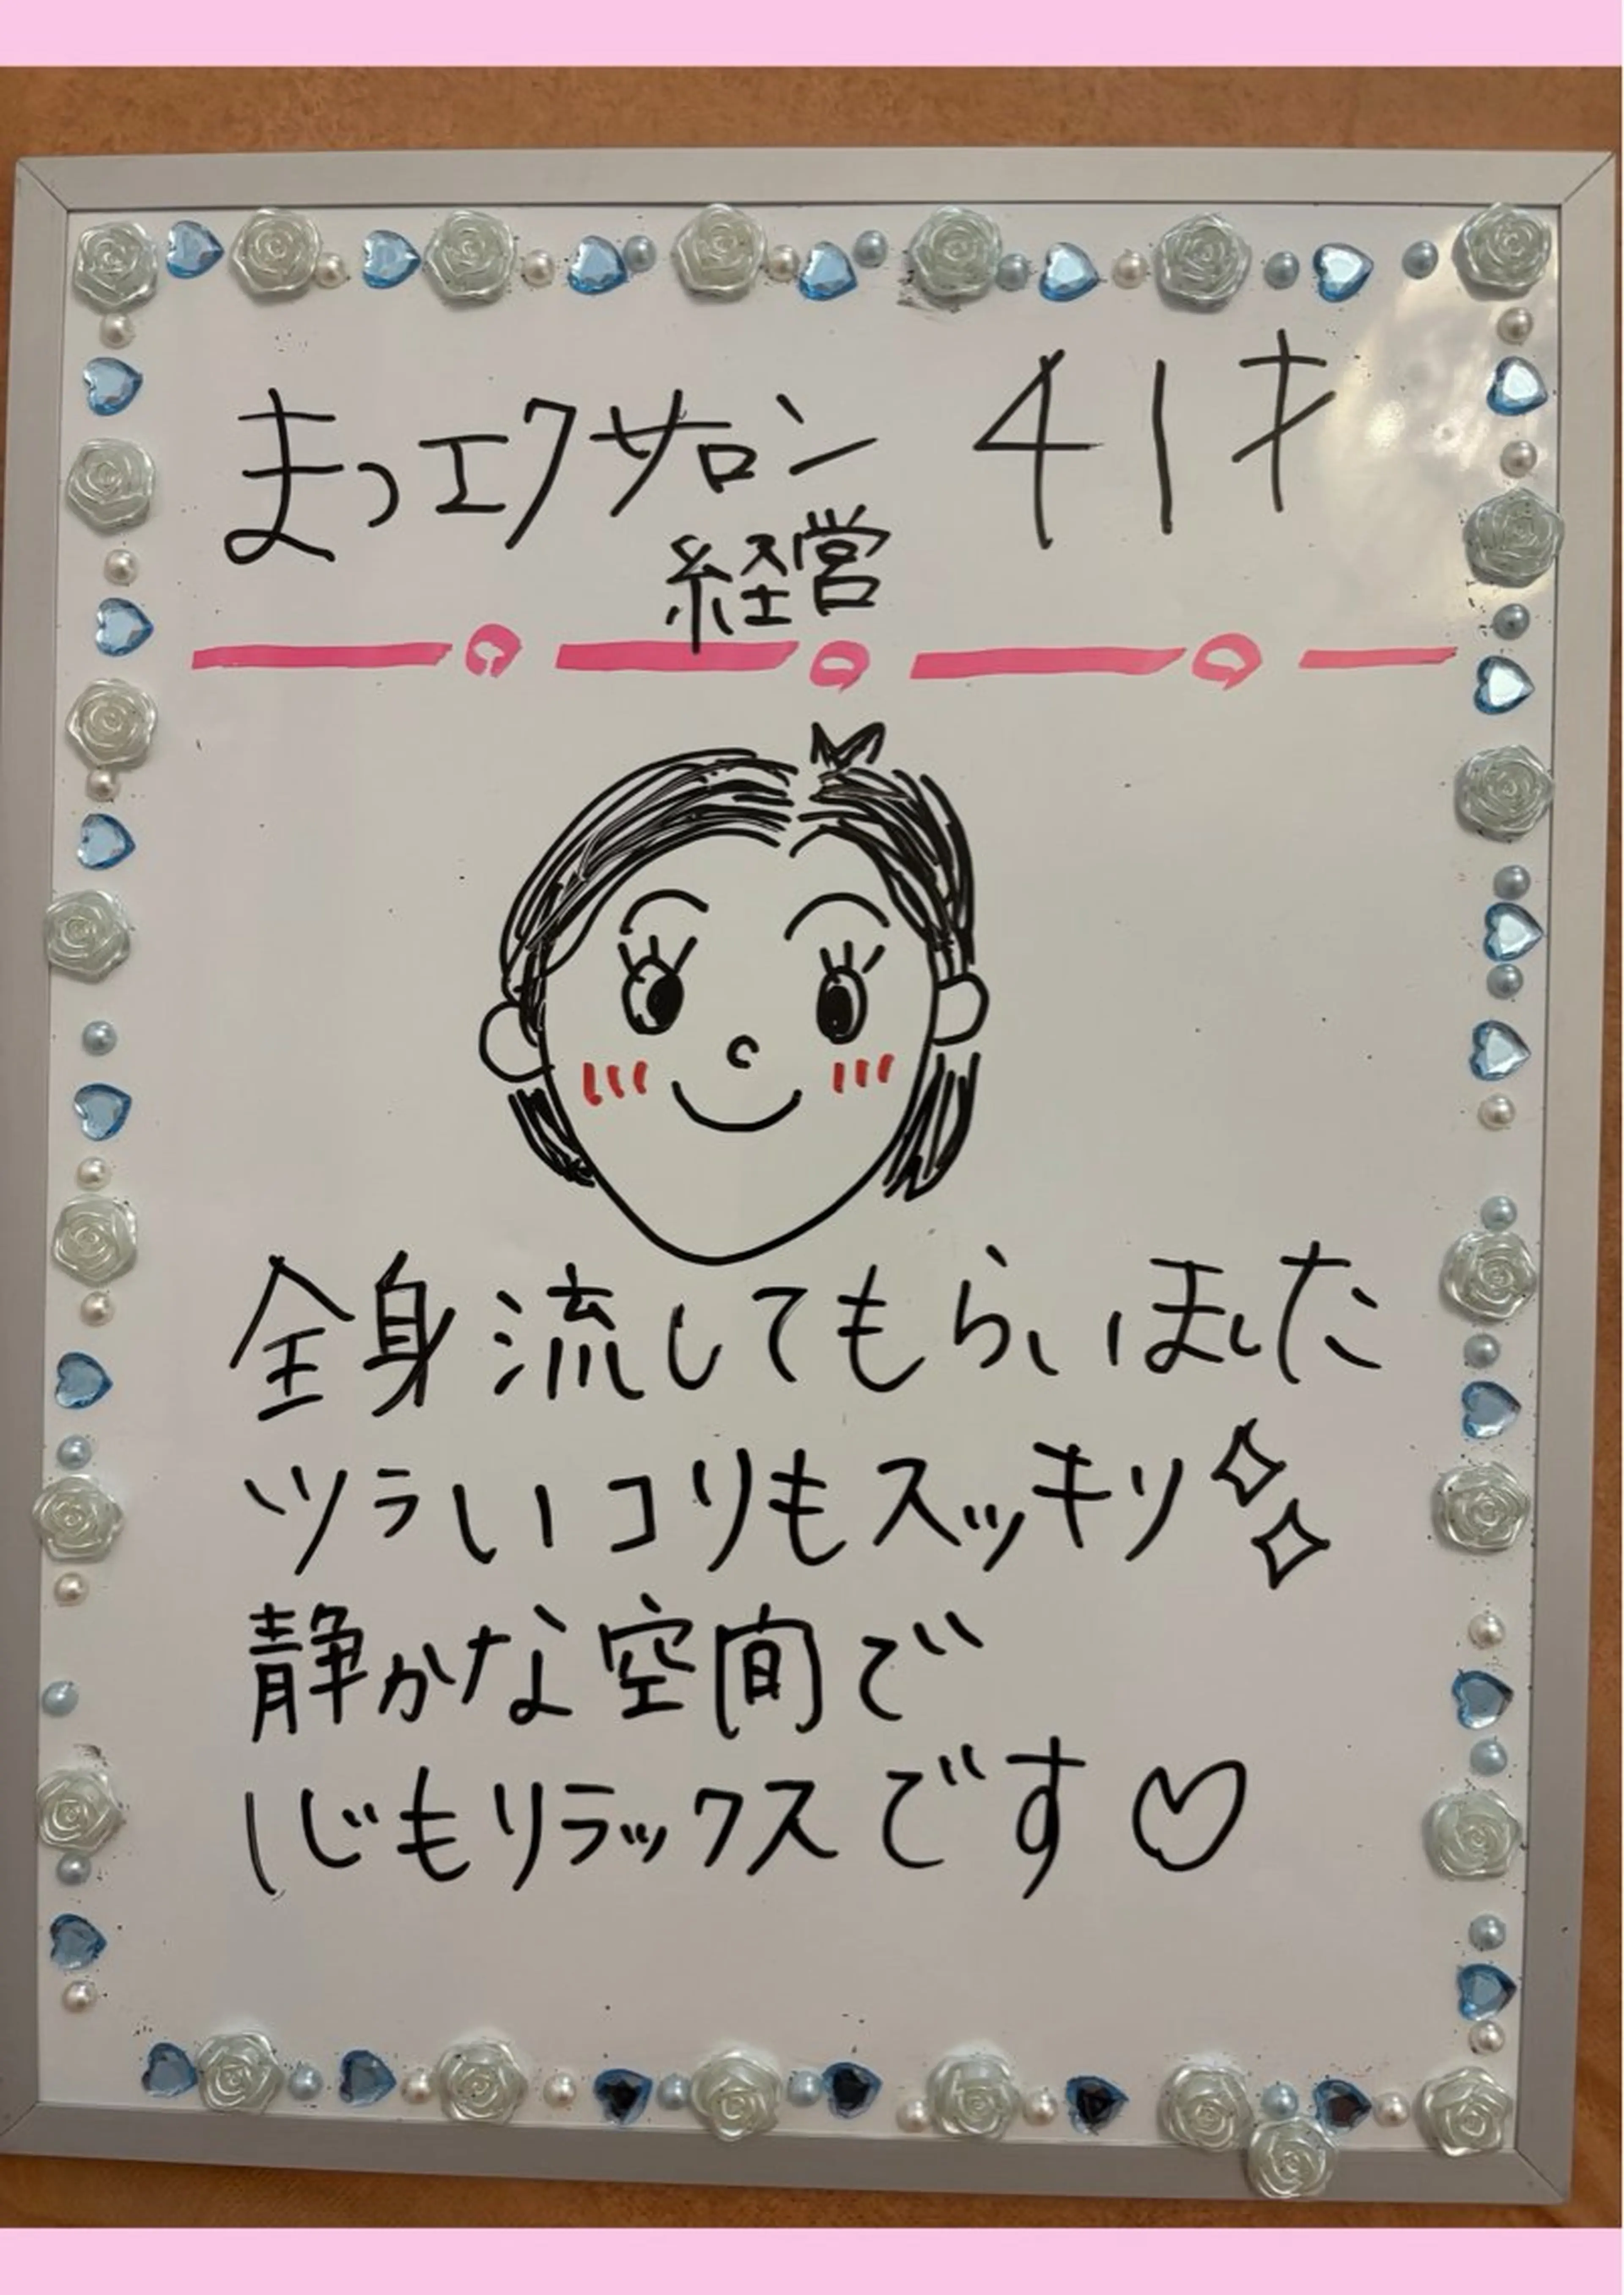 まつエクサロン 41才
経営
全身流してもらいました
ツラいコリもスッキリ
静かな空間で
いじもリラックスです♡